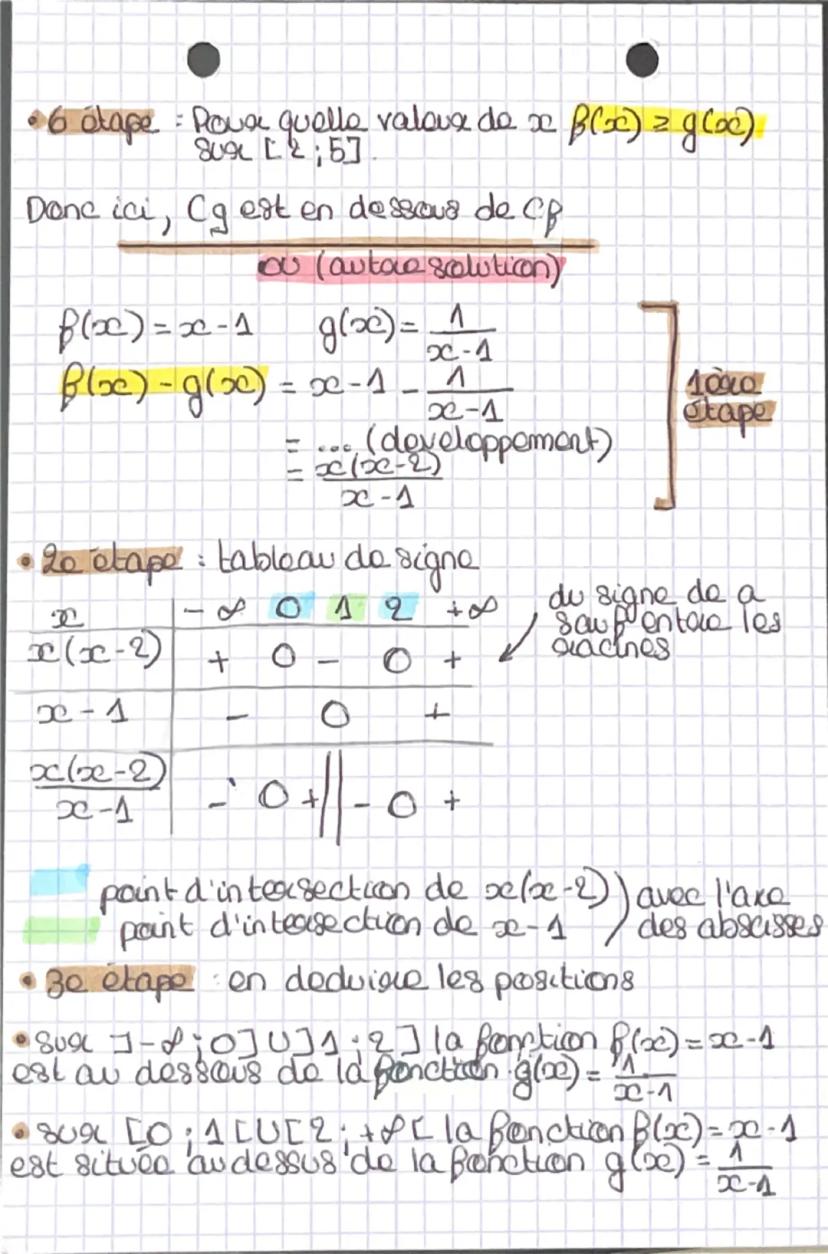 • 6 étape : Pour quelle valeur de x f(x) ≥ g(x)
sur [2 ; 5].
Donc ici, Cg est en dessous de Cf
ou (autre solution)
f(x) = x - 1 g(x) = 1/(x-1)
f(x) - g(x) = x - 1 - 1/(x-1)
= ... (developpement)
= x(x-2)/(x-1)
1ère
étape
• 2e étape : tableau de signe
x -∞ 0 1 2 +∞
x(x-2) + 0 - 0 +
x - 1 - 0 +
x(x-2)/(x-1) - 0 + || - 0 +
du signe de a
sauf entre les
racines
point d'intersection de x(x-2)
point d'intersection de x-1
) avec l'axe
des abscisses
• 3e étape : en deduire les positions
• sur ]-∞ ; 0] U ]1 ; 2] la fonction f(x) = x-1
est au dessous de la fonction g(x) = 1/(x-1)
• sur [0 ; 1[ U [2 ; +∞[ la fonction f(x) = x-1
est située au dessus de la fonction g(x) = 1/(x-1)